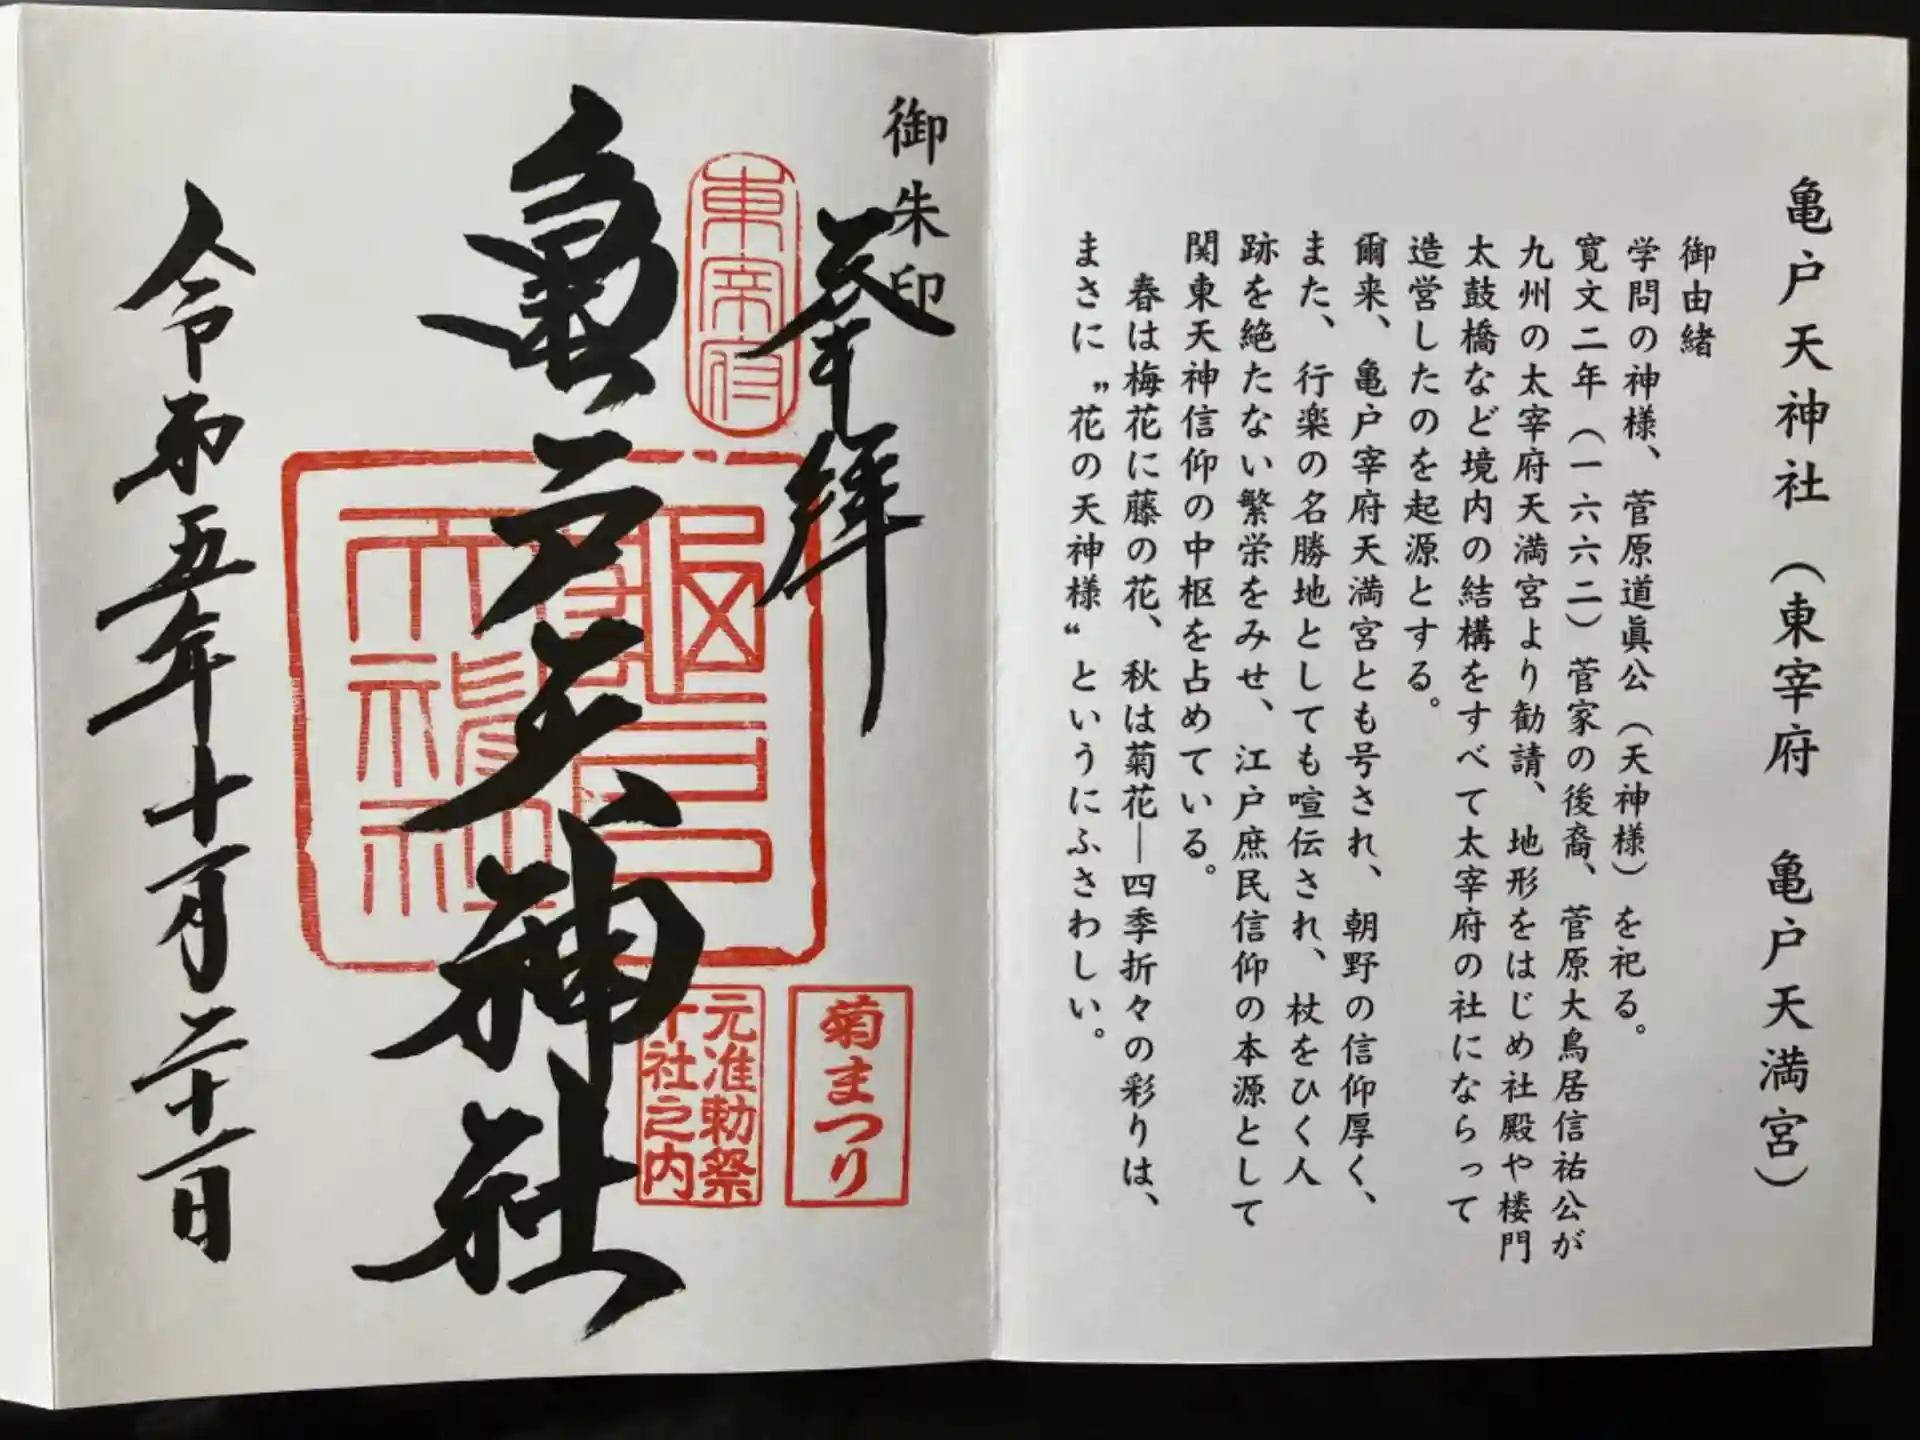 亀戸天神社（東宰府　亀戸天満宮）
御由緒
学問の神様、菅原道眞公（天神様）を祀る。
寛文二年（一六六二）菅家の後裔、菅原大鳥居信祐公が
九州の太宰府天満宮より勧請、地形をはじめ社殿や楼門
太鼓橋など境内の結構をすべて太宰府の社にならって
造営したのを起源とする。
爾来、亀戸宰府天満宮とも号され、朝野の信仰厚く、
また、行楽の名勝地としても喧伝され、杖をひく人
跡を絶たない繁栄をみせ、江戸庶民信仰の本源として
関東天神信仰の中枢を占めている。
春は梅花に藤の花、秋は菊花―四季折々の彩りは、
まさに〝花の天神様〟というにふさわしい。
御朱印
奉拝
東宰府
菊まつり
元准勅祭
十社之内
亀戸天神社
亀戸
天神社
令和五年十一月二十一日